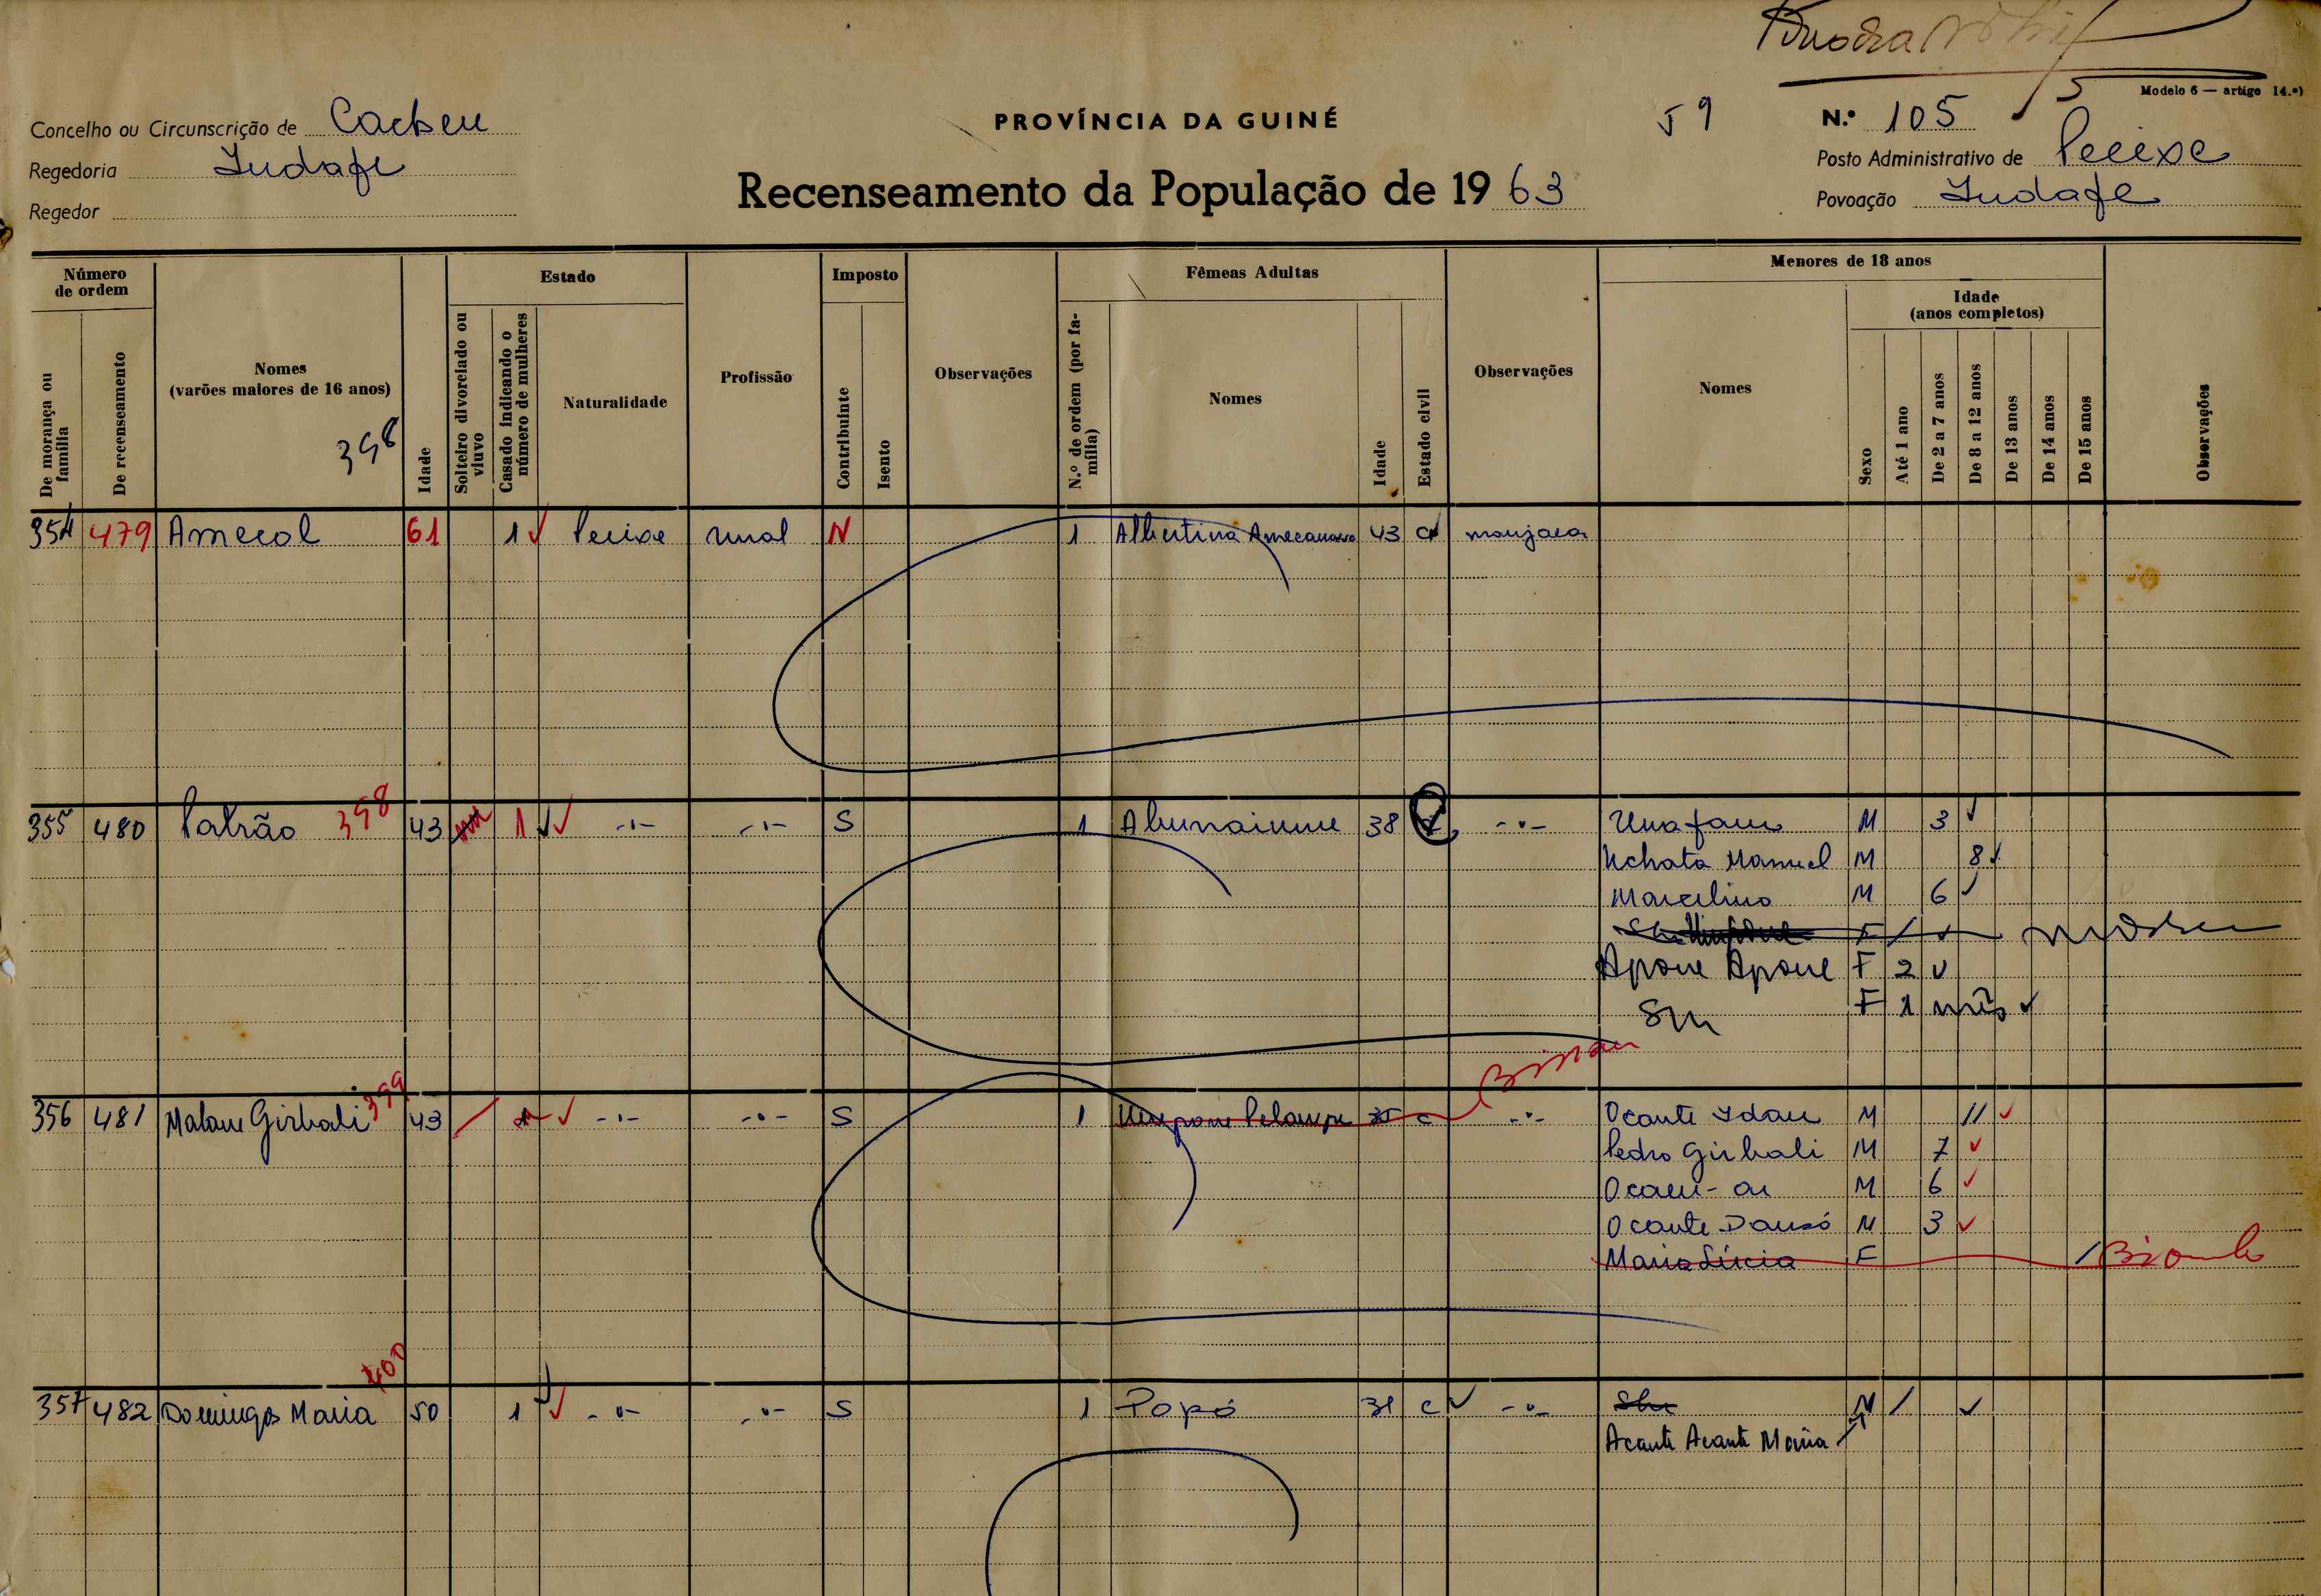 Modelo 6 — artigo 14.º)
Concelho ou Circunscrição de Cacheu
PROVÍNCIA DA GUINÉ
59
N.º 105
Regedoria Indafe
Posto Administrativo de Pecixe
Recenseamento da População de 1963
Regedor
Povoação Indafe
Número de ordem
De morança ou família
De recenseamento
Nomes
(varões maiores de 16 anos)
398
Idade
Estado
Solteiro divorciado ou viuvo
Casado indicando o número de mulheres
Naturalidade
Profissão
Imposto
Contribuinte
Isento
Observações
Fêmeas Adultas
N.º de ordem (por família)
Nomes
Idade
Estado civil
Observações
Menores de 18 anos
Nomes
Idade
(anos completos)
Sexo
Até 1 ano
De 2 a 7 anos
De 8 a 12 anos
De 13 anos
De 14 anos
De 15 anos
Observações
354 479 Amecol 61 1 Pecixe rural N 1 Albertina 43 c manjaca
355 480 Patrão 398 43 1 -"- -"- S 1 38 -"- M 3
Uchata Manuel M 8
Marcelino M 6
F
Apone Apone F 2
Sn F 1 mês
Bissau
356 481 Malam Girbali 399 43 -"- -"- S 1 c -"- Ocante Idau M 11
Pedro Girbali M 7
M 6
Ocante Dansó M 3
Maria Lúcia F / Biombo
400
357 482 Domingos Maria 50 1 -"- -"- S 1 Popó 31 c -"- M /
Acante Acante Maria